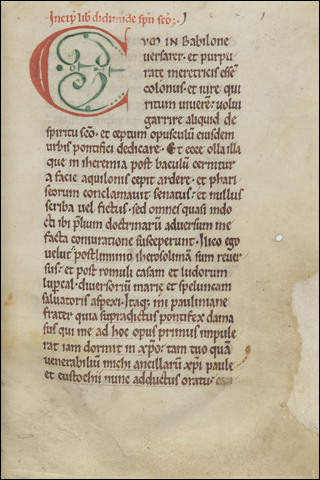 Incip lib didimi de spu sco:
Cum IN Babilone
versarer. et purpu
rate meretricis esse
colonus. et iure qui
ritum viverem: volui
garrire aliquid de
spiritu sco. et ceptum opusculum eiusdem
urbis pontifici dedicare. Et ecce olla illa
que in iheremia post baculum cernitur
a facie aquilonis cepit ardere. et phari
seorum conclamavit senatus. et nullus
scriba vel fictus. sed omnes quasi indo
cti ibi plium doctrinarum adversum me
facta coniuratione susceperunt. Ilico ego
velut postliminio iherosolimam sum rever
sus. et post romuli casam et ludorum
lupcal. diversorium marie et speluncam
salvatoris aspexi. Itaq; mi pauliniane
frater quia supradictus pontifex dama
sus qui me ad hoc opus primus impule
rat iam dormit in xpo. tam tuo quā
venerabiliū michi ancillarū xpi paule
et eustochii nunc adductus oratu.